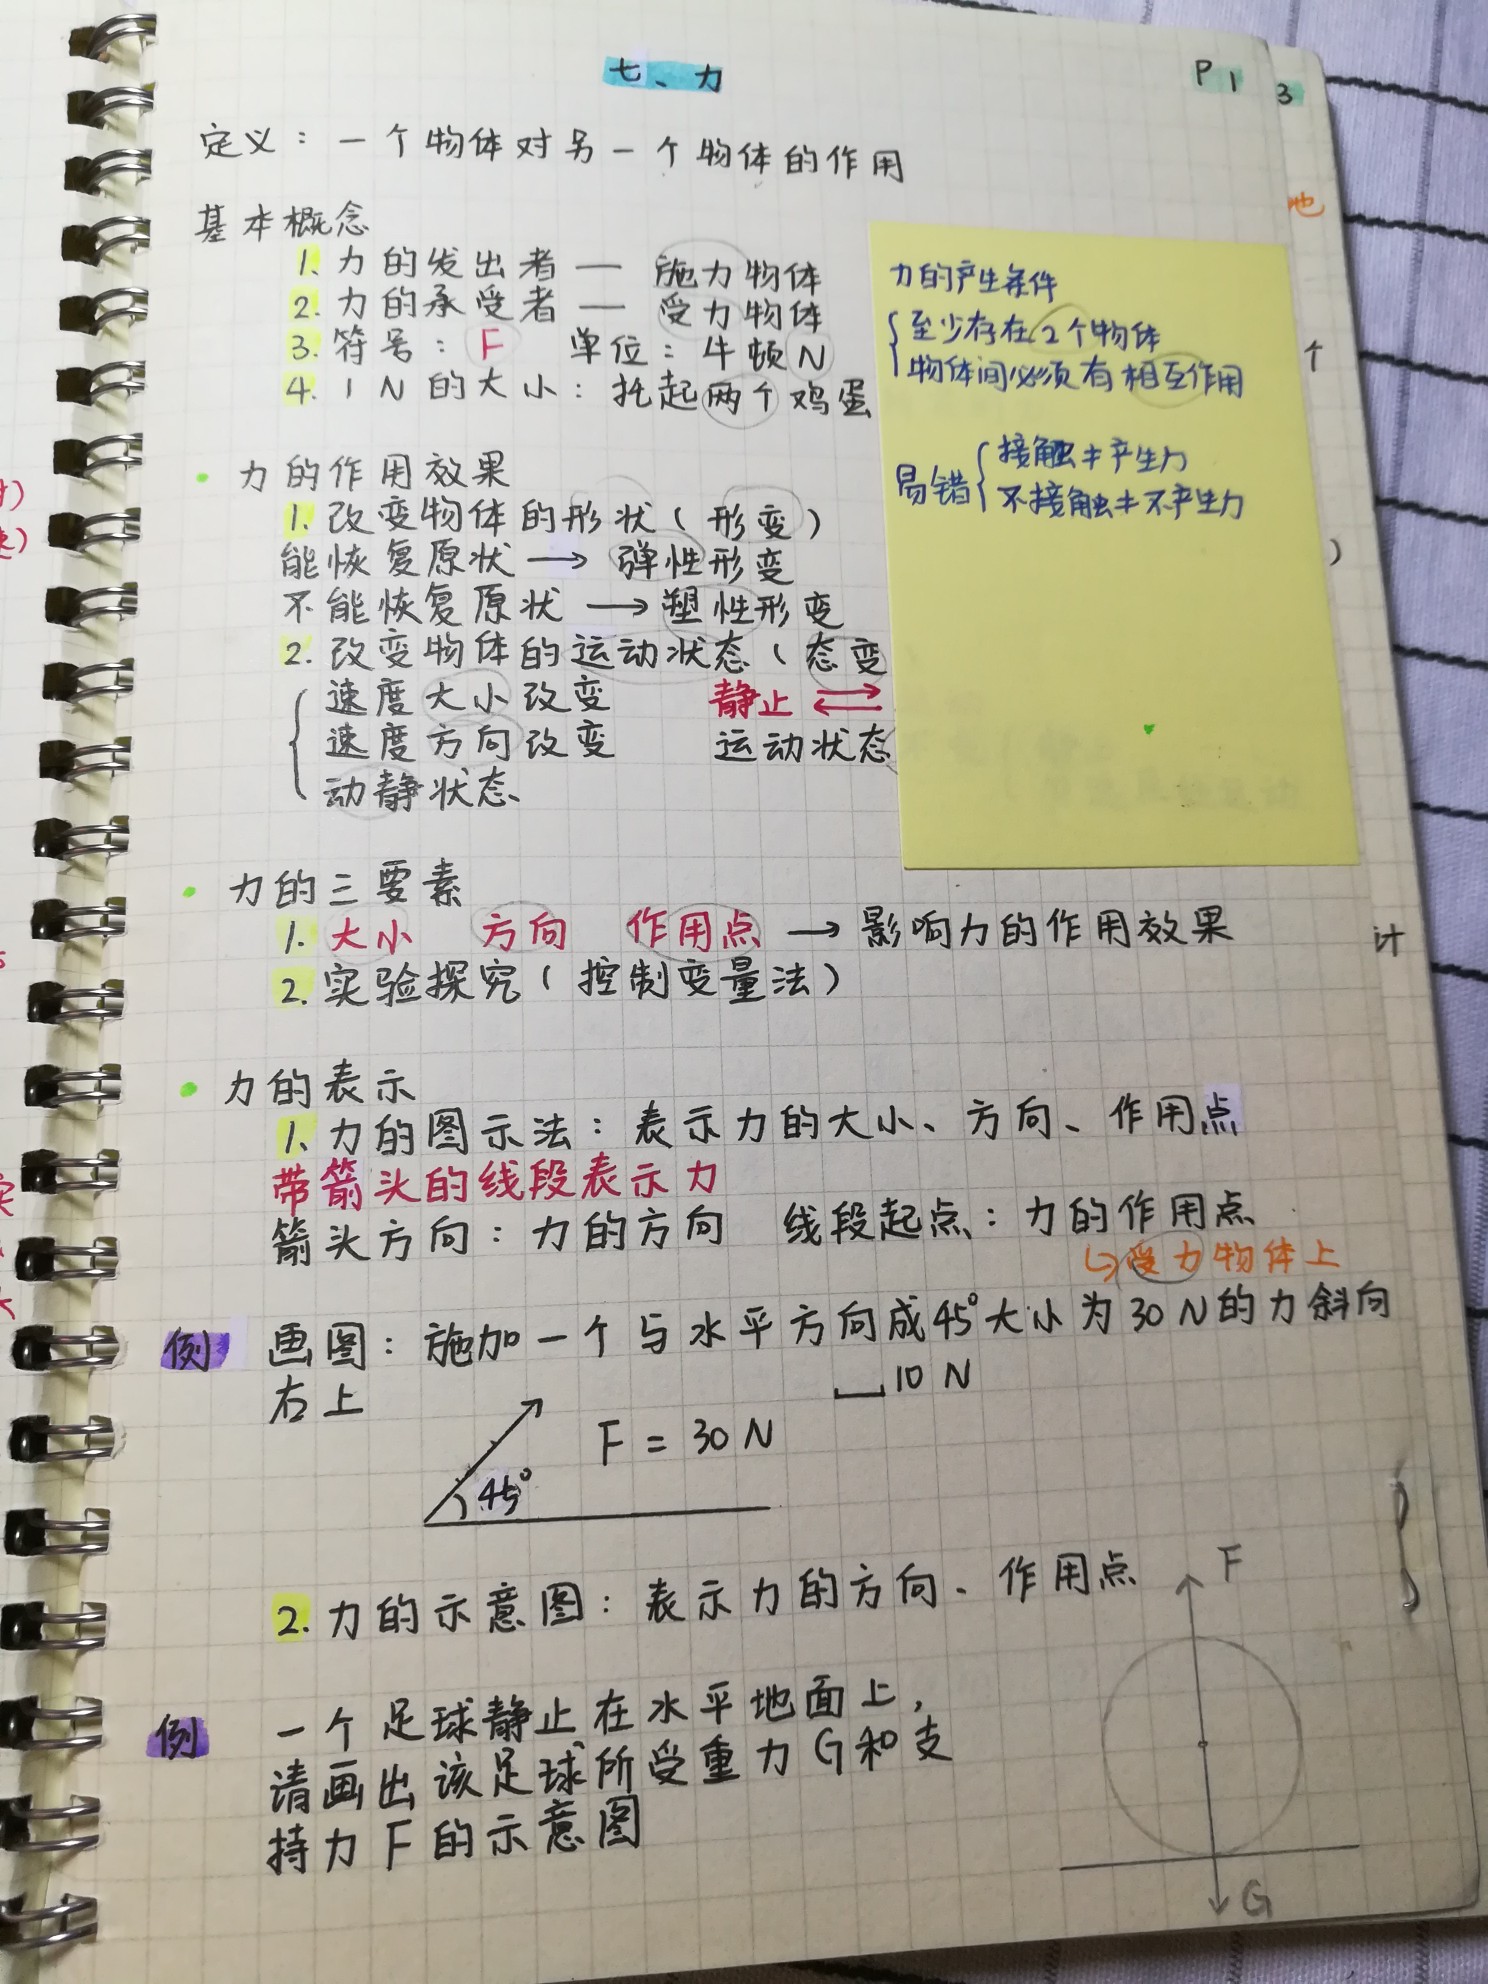 七、力
P1
3
定义：一个物体对另一个物体的作用
基本概念
1. 力的发出者 — 施力物体
2. 力的承受者 — 受力物体
3. 符号：F 单位：牛顿 N
4. 1 N 的大小：托起两个鸡蛋
力的产生条件
至少存在2个物体
物体间必须有相互作用
易错
接触≠产生力
不接触≠不产生力
地
个
)
计
力的作用效果
1. 改变物体的形状（形变）
能恢复原状 → 弹性形变
不能恢复原状 → 塑性形变
2. 改变物体的运动状态（态变
速度大小改变 静止 ⇄
速度方向改变 运动状态
动静状态
力的三要素
1. 大小 方向 作用点 → 影响力的作用效果
2. 实验探究（控制变量法）
力的表示
1. 力的图示法：表示力的大小、方向、作用点
带箭头的线段表示力
箭头方向：力的方向 线段起点：力的作用点
↳受力物体上
例 画图：施加一个与水平方向成45°大小为30N的力斜向
右上
10 N
F = 30 N
45°
2. 力的示意图：表示力的方向、作用点
F
例 一个足球静止在水平地面上，
请画出该足球所受重力G和支
持力F的示意图
G